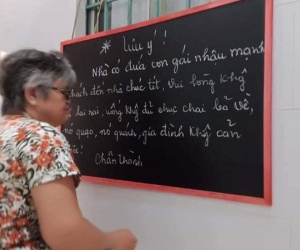 * Lưu ý !
Nhà có đứa con gái nhậu mạnh
khách đến nhà chúc tết, vui lòng khg̃
lai rai, uống khg̃ đủ chục chai bả về,
nó quạo, nó quánh, gia đình khg̃ cản
Chân thành